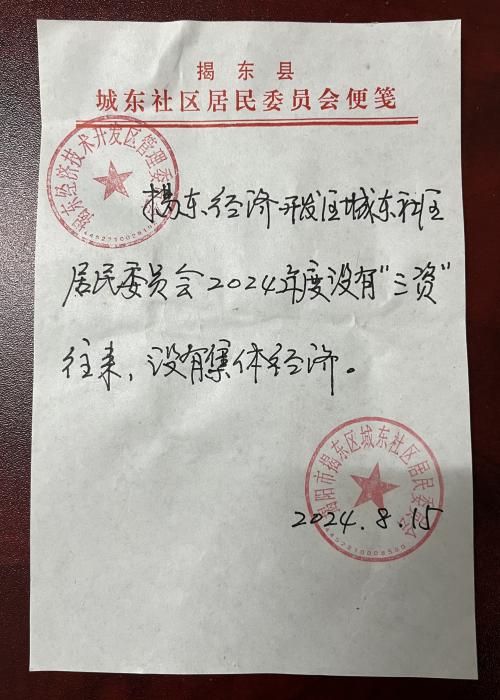 揭东县
城东社区居民委员会便笺
揭东经济技术开发区管理委员会
揭东经济开发区城东社区
居民委员会2024年度没有"三资"
往来，没有集体经济。
揭阳市揭东区城东社区居民委员会
2024.8.15